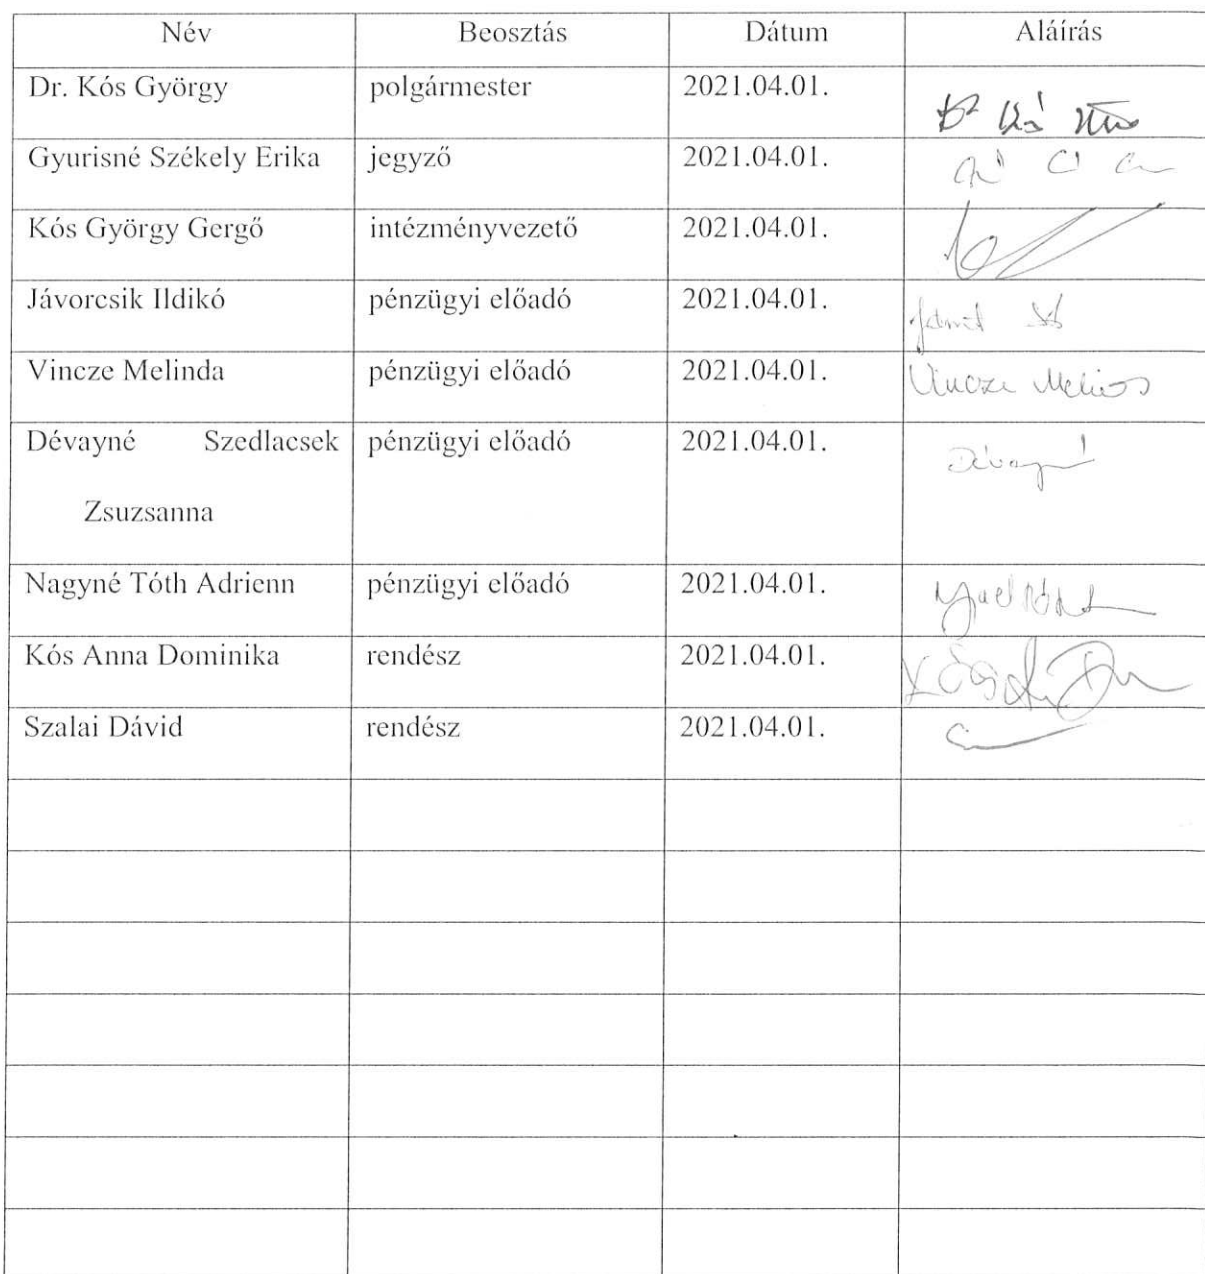 Név Beosztás Dátum Aláírás
Dr. Kós György polgármester 2021.04.01.
Gyurisné Székely Erika jegyző 2021.04.01.
Kós György Gergő intézményvezető 2021.04.01.
Jávorcsik Ildikó pénzügyi előadó 2021.04.01.
Vincze Melinda pénzügyi előadó 2021.04.01. Vincze
Dévayné Szedlacsek pénzügyi előadó 2021.04.01. Dévayné
Zsuzsanna
Nagyné Tóth Adrienn pénzügyi előadó 2021.04.01.
Kós Anna Dominika rendész 2021.04.01.
Szalai Dávid rendész 2021.04.01.